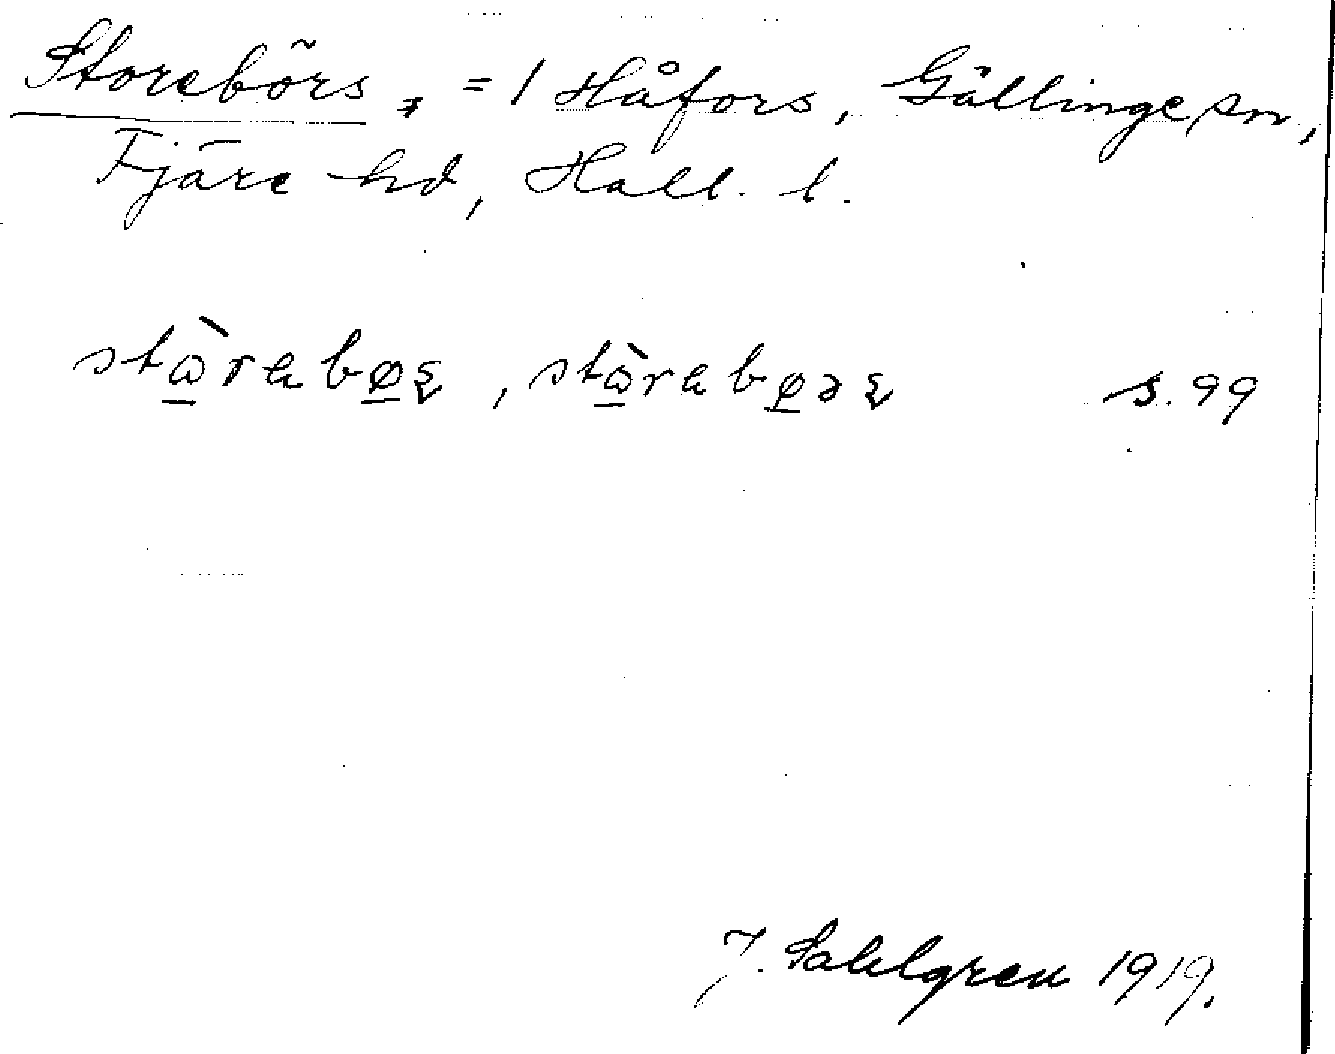 Storebörs, = 1 Håfors, Gällinge sn,
Fjäre hd, Hall. l.
stὼ̲rabø̲ꜱ, stὼ̲rabø̲əꜱ s. 99
J. Sahlgren 1919.